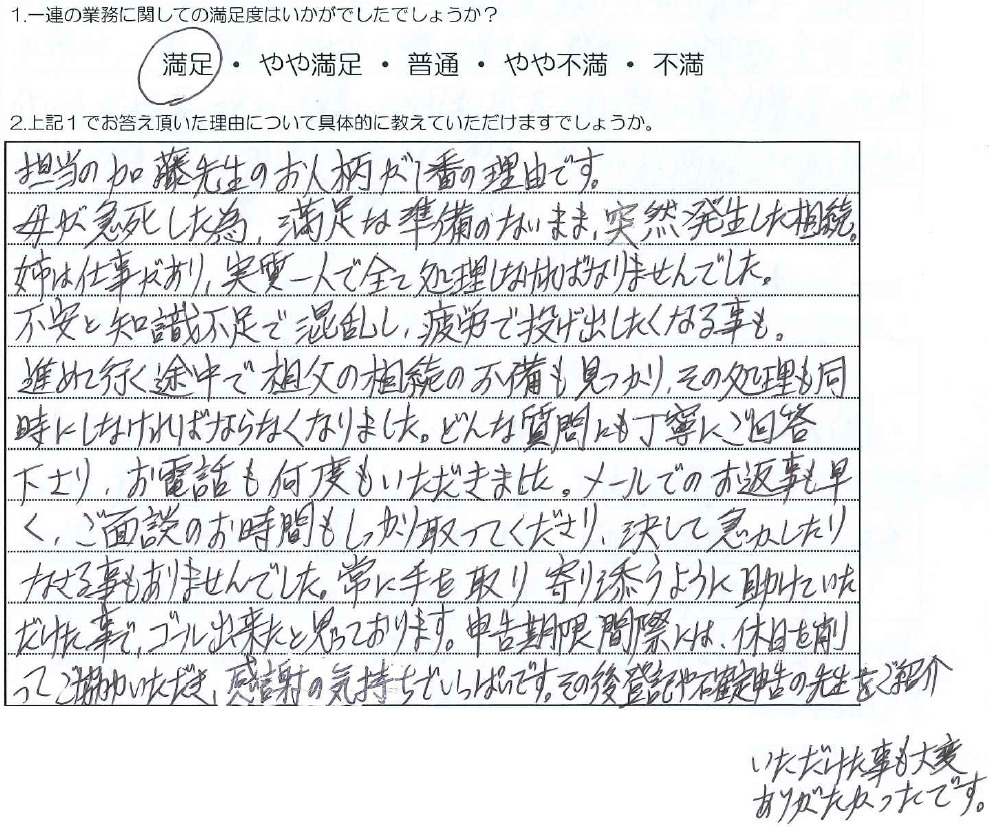 1.一連の業務に関しての満足度はいかがでしたでしょうか?
満足 ・ やや満足 ・ 普通 ・ やや不満 ・ 不満
2.上記1でお答え頂いた理由について具体的に教えていただけますでしょうか。
担当の加藤先生のお人柄が1番の理由です。
母が急死した為、満足な準備のないまま、突然発生した相続。
姉は仕事があり、実質一人で全て処理しなければなりませんでした。
不安と知識不足で混乱し、疲労で投げ出したくなる事も。
進めて行く途中で祖父の相続の不備も見つかり、その処理も同
時にしなければならなくなりました。どんな質問にも丁寧にご回答
下さり、お電話も何度もいただきました。メールでのお返事も早
く、ご面談のお時間もしっかり取ってくださり、決して急かしたり
なさる事もありませんでした。常に手を取り寄り添うように助けていた
だけた事で、ゴール出来たと思っております。申告期限間際には、休日を削
ってご協力いただき、感謝の気持ちでいっぱいです。その後登記や確定申告の先生をご紹介
いただけた事も大変
ありがたかったです。